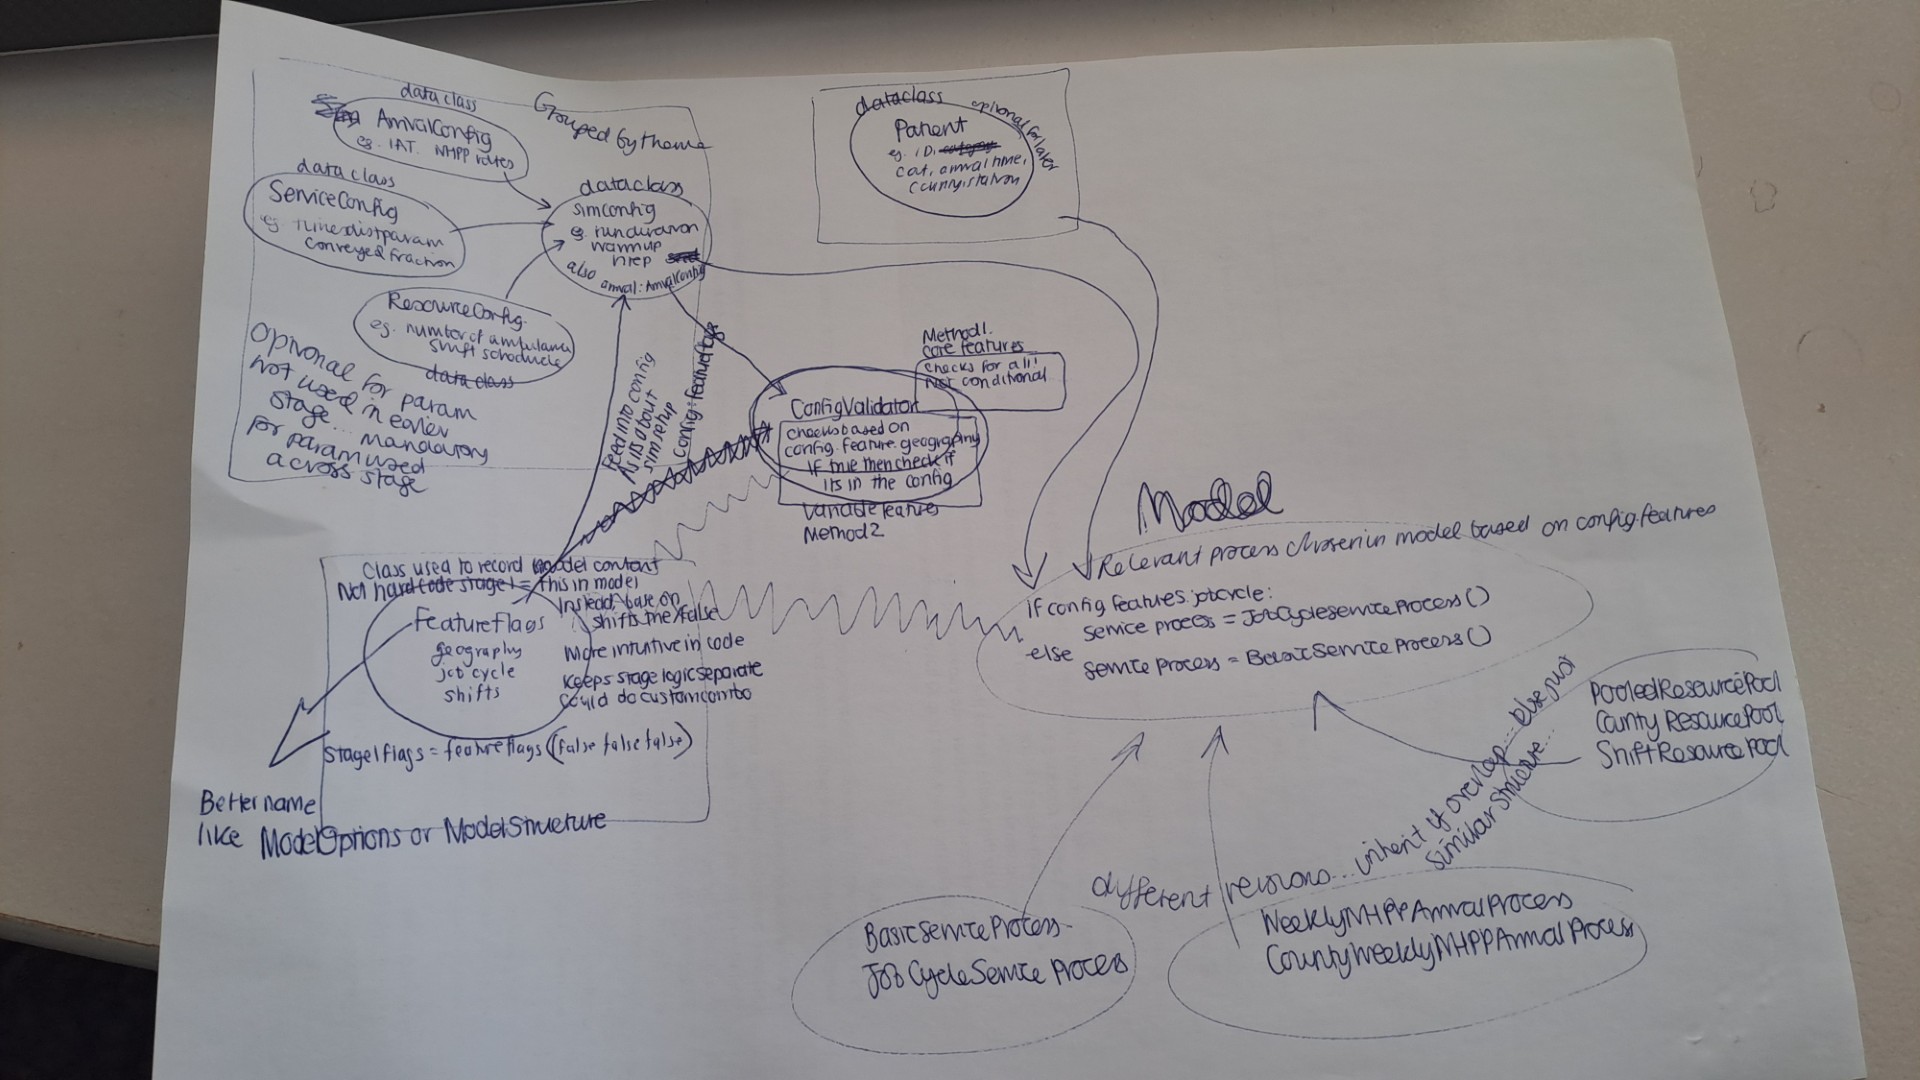 dataclass
Grouped by theme
ArrivalConfig
eg. IAT. NHPP rates
dataclass
ServiceConfig
eg. times dist param
conveyed fraction
dataclass
SimConfig
eg. run duration
warmup
nrep
also
arrival: ArrivalConfig
ResourceConfig.
eg. number of ambulance
shift schedule
dataclass
Optional for param
not used in earlier
stage... mandatory
for param used
across stage
dataclass
optional for later
Patient
eg. ID, category
cat, arrival time,
county, station
Feed into config
As its about
sim setup
config: featureflags
Method 1.
core features
checks for all!
Not conditional
ConfigValidator
checks based on
config.feature.geography
If true then check if
its in the config
variable features
Method 2
Class used to record model content
Not hard code stage 1 = this in model
Instead, base on
shifts true/false
More intuitive in code
Keeps stage logic separate
Could do custom combo
FeatureFlags
geography
job cycle
shifts
Stage1flags = featureflags(false false false)
Better name
like ModelOptions or ModelStructure
Model
Relevant process chosen in model based on config.features
if config.features.jobcycle:
service process = JobCycleServiceProcess()
else
service process = BasicServiceProcess()
PooledResourcePool
CountyResourcePool
ShiftResourcePool
different versions... inherit if overlap... else just
similar structure...
BasicServiceProcess
JobCycleServiceProcess
WeeklyNHPPArrivalProcess
CountyWeeklyNHPPArrivalProcess